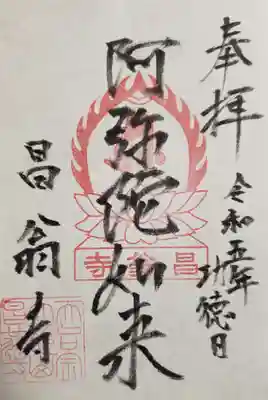 奉拝
令和五年
功徳日
阿弥陀如来
寺翁昌
昌翁寺